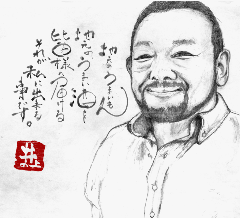 地元のうまいもん
地元のうまい酒を
皆様へ届ける
それが
私に出来る
事です。
井上